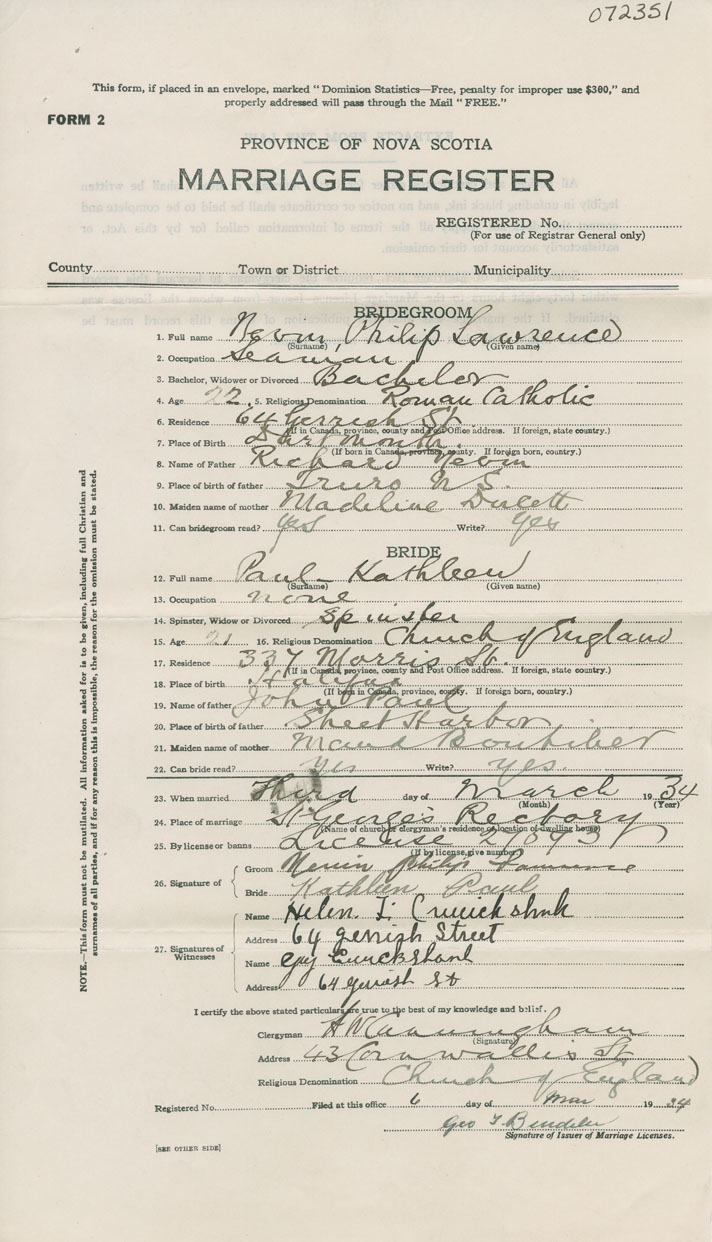 072351
This form, if placed in an envelope, marked "Dominion Statistics—Free, penalty for improper use $300," and
properly addressed will pass through the Mail "FREE."
FORM 2
PROVINCE OF NOVA SCOTIA
MARRIAGE REGISTER
REGISTERED No.
(For use of Registrar General only)
County Town or District Municipality
BRIDEGROOM
1. Full name Philip Lawrence
(Surname) (Given name)
2. Occupation Seaman
3. Bachelor, Widower or Divorced Bachelor
4. Age 22. 5. Religious Denomination Roman Catholic
6. Residence 64 Gerrish St.
(If in Canada, province, county and Post Office address. If foreign, state country.)
7. Place of Birth Dartmouth.
(If born in Canada, province, county. If foreign born, country.)
8. Name of Father Richard
9. Place of birth of father Truro N.S.
10. Maiden name of mother Madeline
11. Can bridegroom read? yes Write? yes
BRIDE
12. Full name Paul - Kathleen
(Surname) (Given name)
13. Occupation none
14. Spinster, Widow or Divorced Spinster
15. Age 21 16. Religious Denomination Church of England
17. Residence 337 Morris St.
(If in Canada, province, county and Post Office address. If foreign, state country.)
18. Place of birth Halifax
(If born in Canada, province, county. If foreign born, country.)
19. Name of father John Paul
20. Place of birth of father Sheet Harbor
21. Maiden name of mother Maud Boutilier
22. Can bride read? yes Write? yes.
23. When married Third day of March 1934
(Month) (Year)
24. Place of marriage St George's Rectory
(Name of church or clergyman's residence or location of dwelling house)
25. By license or banns License
(If by license, give number)
26. Signature of Groom Philip Lawrence
Bride Kathleen Paul
27. Signatures of Witnesses
Name Helen Cruickshank
Address 64 Gerrish Street
Name Guy Cruickshank
Address 64 Gerrish St
I certify the above stated particulars are true to the best of my knowledge and belief.
Clergyman H W Cunningham
(Signature)
Address 43 Cornwallis St
Religious Denomination Church of England
Registered No. Filed at this office 6 day of Mar 1934
Geo
Signature of Issuer of Marriage Licenses.
[SEE OTHER SIDE]
NOTE.—This form must not be mutilated. All information asked for is to be given, including full Christian and
surnames of all parties, and if for any reason this is impossible, the reason for the omission must be stated.